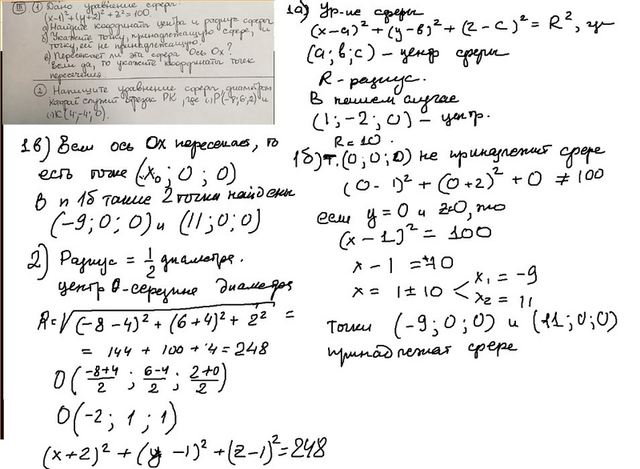 III 1) Дано уравнение сферы
(x-1)²+(y+2)²+z²=100
а) Найдите координаты центра и радиус сферы
б) Укажите точку, принадлежащую сфере, и
точку, ей не принадлежащую.
в) Пересекает ли эта сфера ось Ox?
Если да, то укажите координаты точек
пересечения.
2) Напишите уравнение сферы, диаметром
которой служит отрезок PK, где P(-8;6;2) и
K(4;-4;0).
1а) Ур-ие сферы
(x-a)²+(y-в)²+(z-c)²=R², где
(a;в;c) - центр сферы
R - радиус.
В нашем случае
(1;-2;0) - центр.
R=10.
1б) т.(0;0;0) не принадлежит сфере
(0-1)²+(0+2)²+0≠100
если y=0 и z=0, то
(x-1)²=100
x-1=±10
x=1±10 x₁=-9
x₂=11
точки (-9;0;0) и (11;0;0)
принадлежат сфере
1в) Если ось Ox пересекает, то
есть точка (x₀;0;0)
В п 1б такие 2 точки найдены
(-9;0;0) и (11;0;0)
2) Радиус = 1/2 диаметра.
центр O-середина диаметра
R=√(-8-4)²+(6+4)²+2² =
= 144+100+4=248
O(-8+4/2; 6-4/2; 2+0/2)
O(-2;1;1)
(x+2)²+(y-1)²+(z-1)²=248